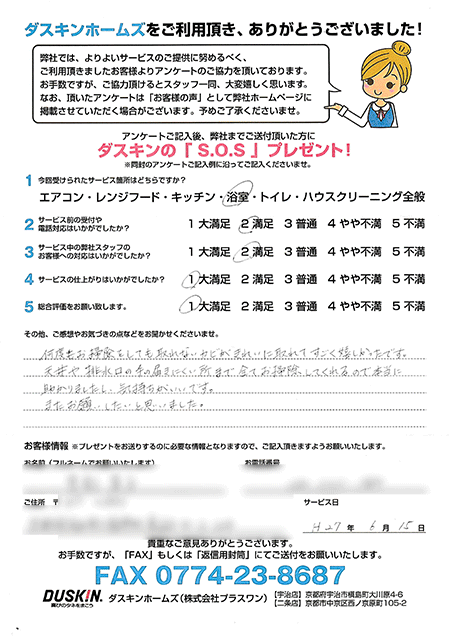 ダスキンホームズをご利用頂き、ありがとうございました!
弊社では、よりよいサービスのご提供に努めるべく、
ご利用頂きましたお客様よりアンケートのご協力を頂いております。
お手数ですが、ご協力頂けるとスタッフ一同、大変嬉しく思います。
なお、頂いたアンケートは「お客様の声」として弊社ホームページに
掲載させていただく場合がございます。予めご了承くださいませ。
アンケートご記入後、弊社までご送付頂いた方に
ダスキンの「S.O.S」プレゼント!
※同封のアンケートご記入例に沿ってご記入くださいませ。
1 今回受けられたサービス箇所はどちらですか?
エアコン・レンジフード・キッチン・浴室・トイレ・ハウスクリーニング全般
2 サービス前の受付や
電話対応はいかがでしたか? 1 大満足 2 満足 3 普通 4 やや不満 5 不満
3 サービス中の弊社スタッフの
お客様への対応はいかがでしたか? 1 大満足 2 満足 3 普通 4 やや不満 5 不満
4 サービスの仕上がりはいかがでしたか? 1 大満足 2 満足 3 普通 4 やや不満 5 不満
5 総合評価をお願い致します。 1 大満足 2 満足 3 普通 4 やや不満 5 不満
その他、ご感想やお気づきの点などをお聞かせくださいませ。
何度もお掃除をしても取れないカビがきれいに取れてすごく嬉しかったです。
天井や排水口の手の届きにくい所まで全てお掃除してくれるので本当に
助かりましたし、気持ちがいいです。
またお願いしたいと思いました。
お客様情報 ※プレゼントをお送りするのに必要な情報となりますので、ご記入頂きますようお願いいたします。
お名前(フルネームでお願いいたします) お電話番号
ご住所 〒 サービス日
H27 年 6 月 15 日
貴重なご意見ありがとうございます。
お手数ですが、「FAX」もしくは「返信用封筒」にてご送付をお願いいたします。
FAX 0774-23-8687
DUSKIN. 喜びのタネをまこう ダスキンホームズ(株式会社プラスワン) 【宇治店】京都府宇治市槇島町大川原4-6
【二条店】京都市中京区西ノ京原町105-2